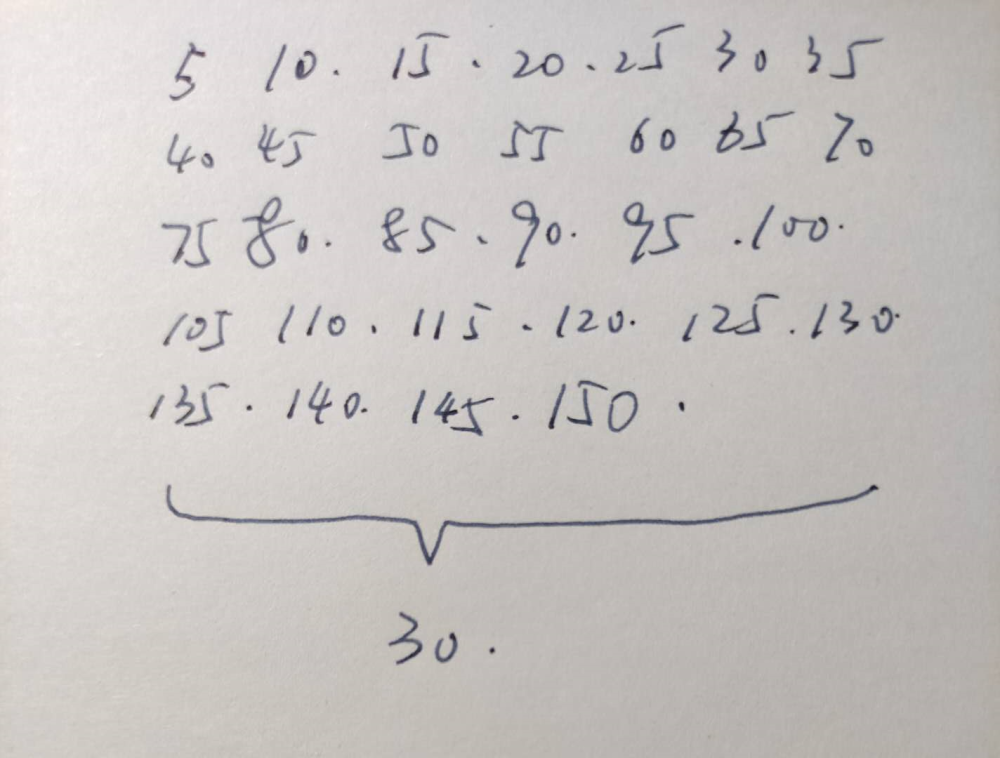 5 10. 15. 20. 25 30 35
40 45 50 55 60 65 70
75 80. 85. 90. 95 .100.
105 110. 115. 120. 125. 130.
135. 140. 145. 150.
30.